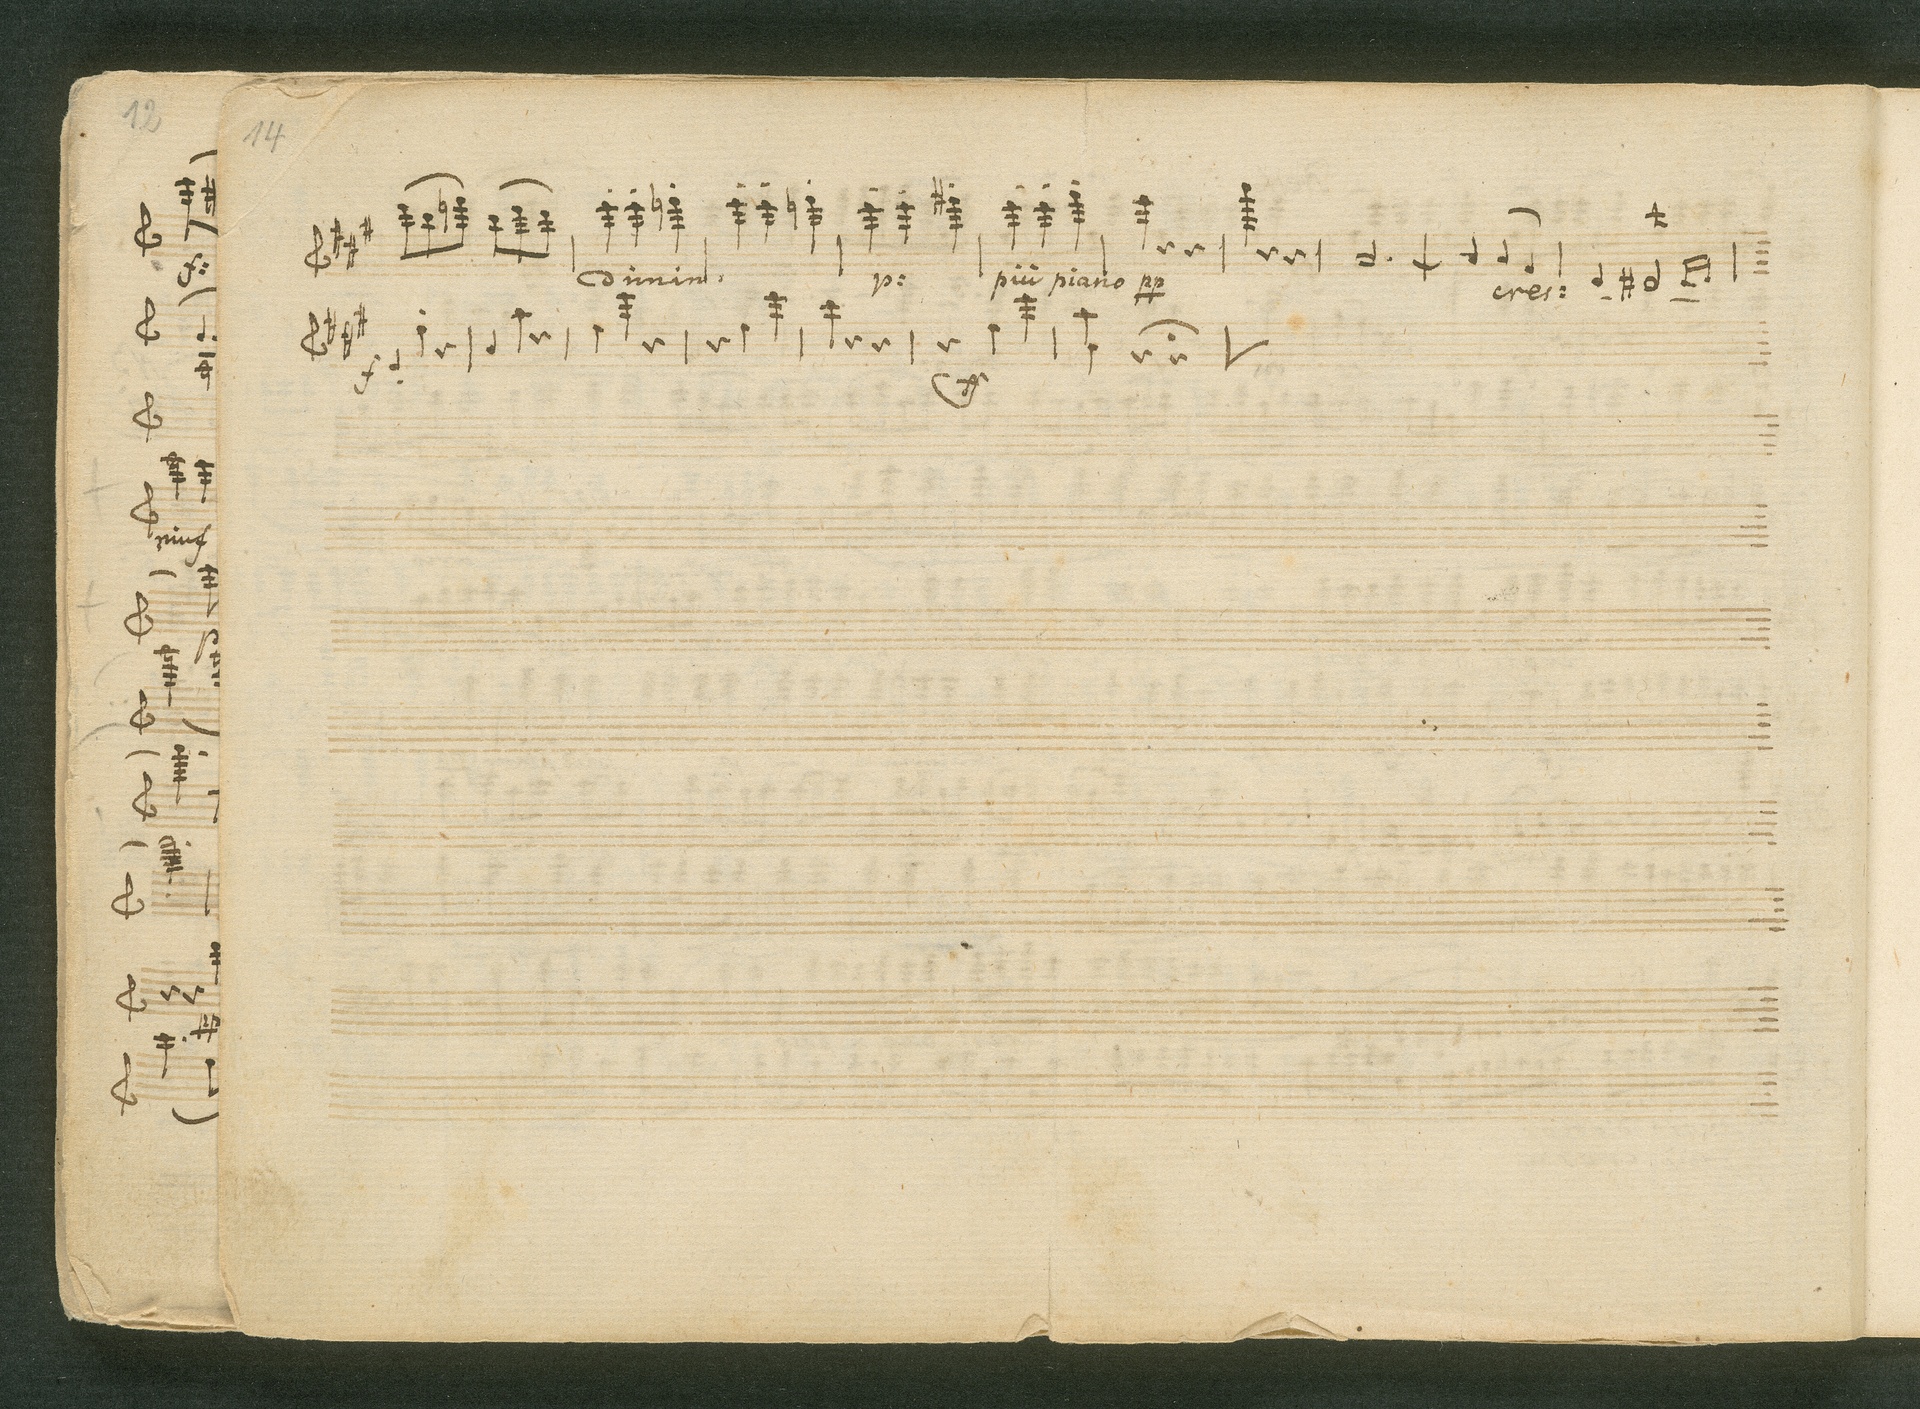 12
14
dimin:
p:
più piano pp
cres:
f
ff
rinf